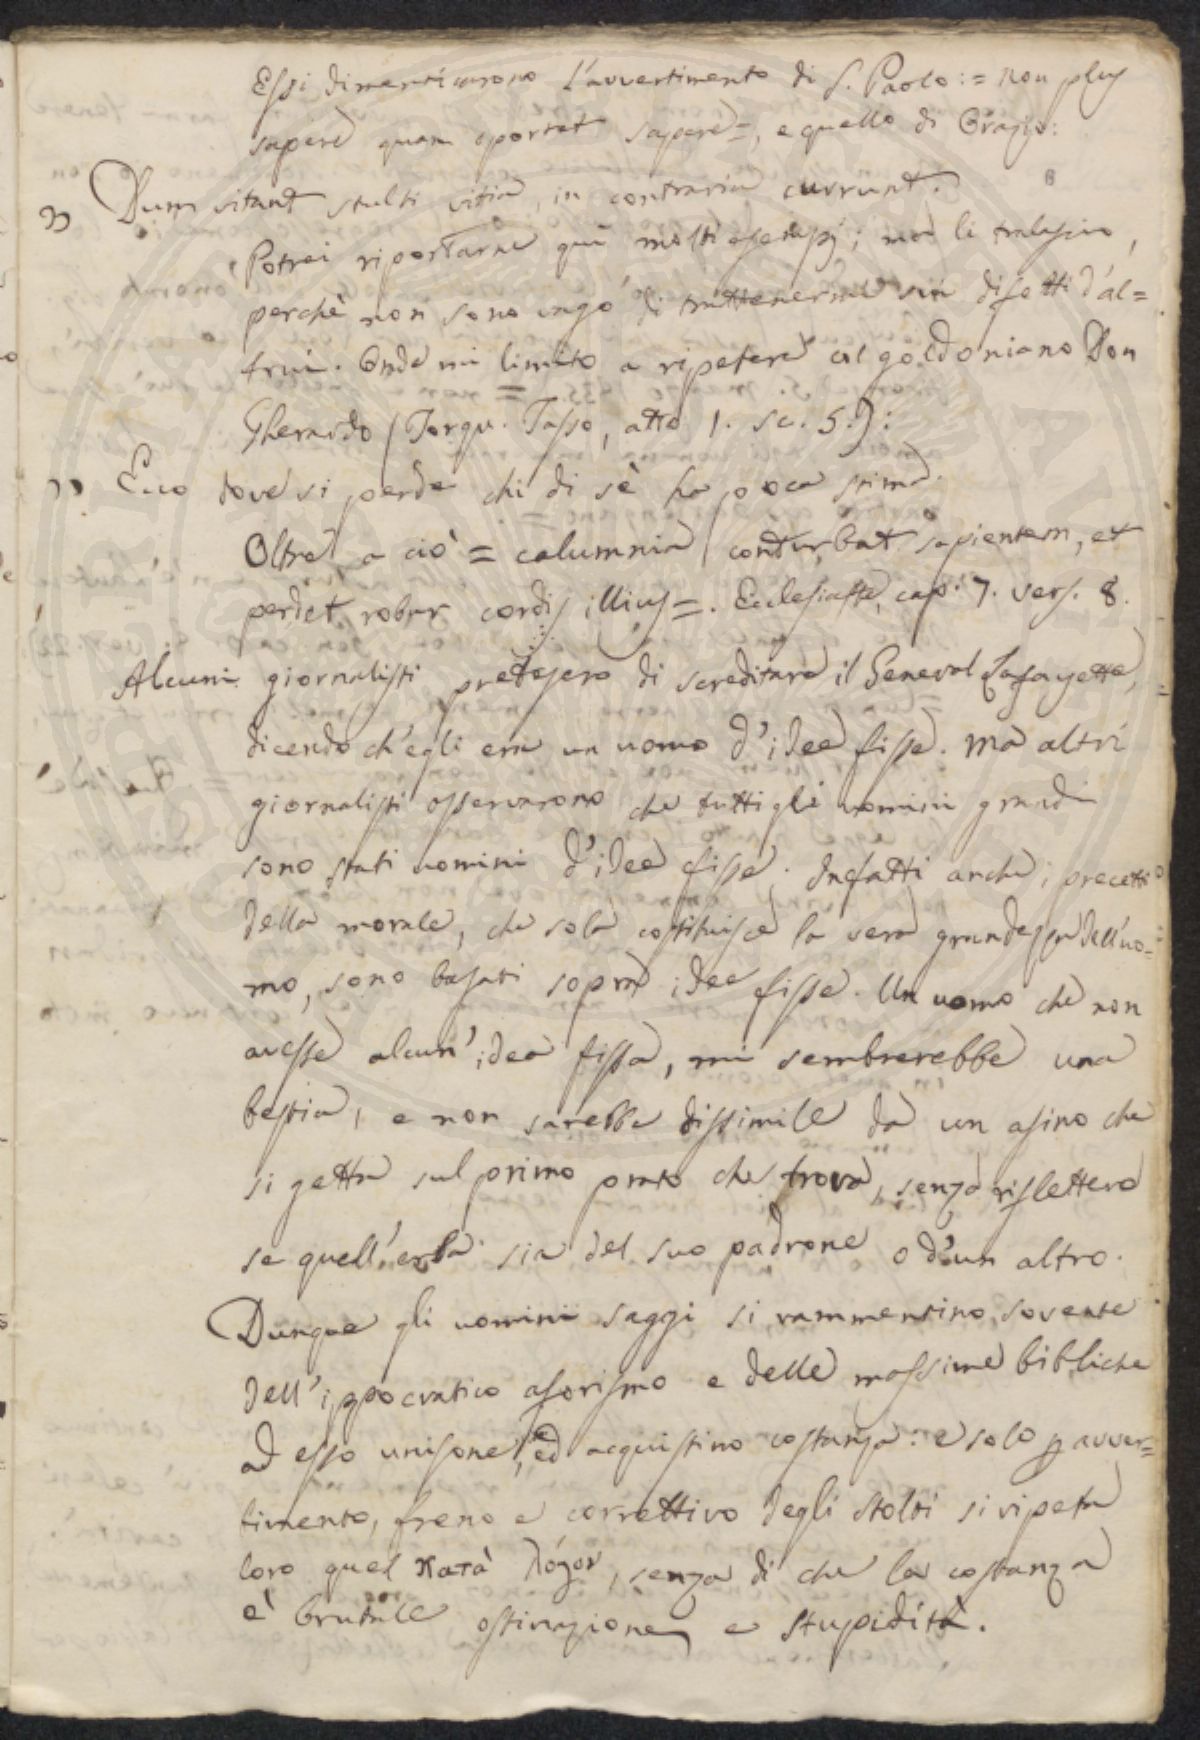 Essi dimenticarono l'avvertimento di S. Paolo: = Non plus
sapere quam oportet sapere =, e quello di Orazio:
" Dum vitant stulti vitia, in contraria currunt.
Potrei riportarne quì molti esempj; ma li tralascio,
perchè non sono vago di trattenermi sui difetti d'al=
trui. Onde mi limito a ripetere col goldoniano Don
Gherardo (Torqu. Tasso, atto 1. sc. 5.):
" Ecco dove si perde chi di sè ha poca stima.
Oltre a ciò = calumnia conturbat sapientem, et
perdet robur cordis illius =. Ecclesiaste, cap. 7. vers. 8.
Alcuni giornalisti pretesero di screditare il General Lafayette,
dicendo ch'egli era un uomo d'idee fisse. Ma altri
giornalisti osservarono che tutti gli uomini grandi
sono stati uomini d'idee fisse. Infatti anche i precetti
della morale, che sola costituisce la vera grandezza dell'uo=
mo, sono basati sopra idee fisse. Un uomo che non
avesse alcun'idea fissa, mi sembrerebbe una
bestia, e non sarebbe dissimile da un asino che
si getta sul primo prato che trova, senza riflettere
se quell'erba sia del suo padrone o d'un altro.
Dunque gli uomini saggi si rammentino sovente
dell'ippocratico aforismo e delle massime bibliche
ad esso unisone, ed acquistino costanza: e solo p avver=
timento, freno e correttivo degli stolti si ripeta
loro quel κατὰ λόγον, senza di che la costanza
è brutale ostinazione e stupidità.